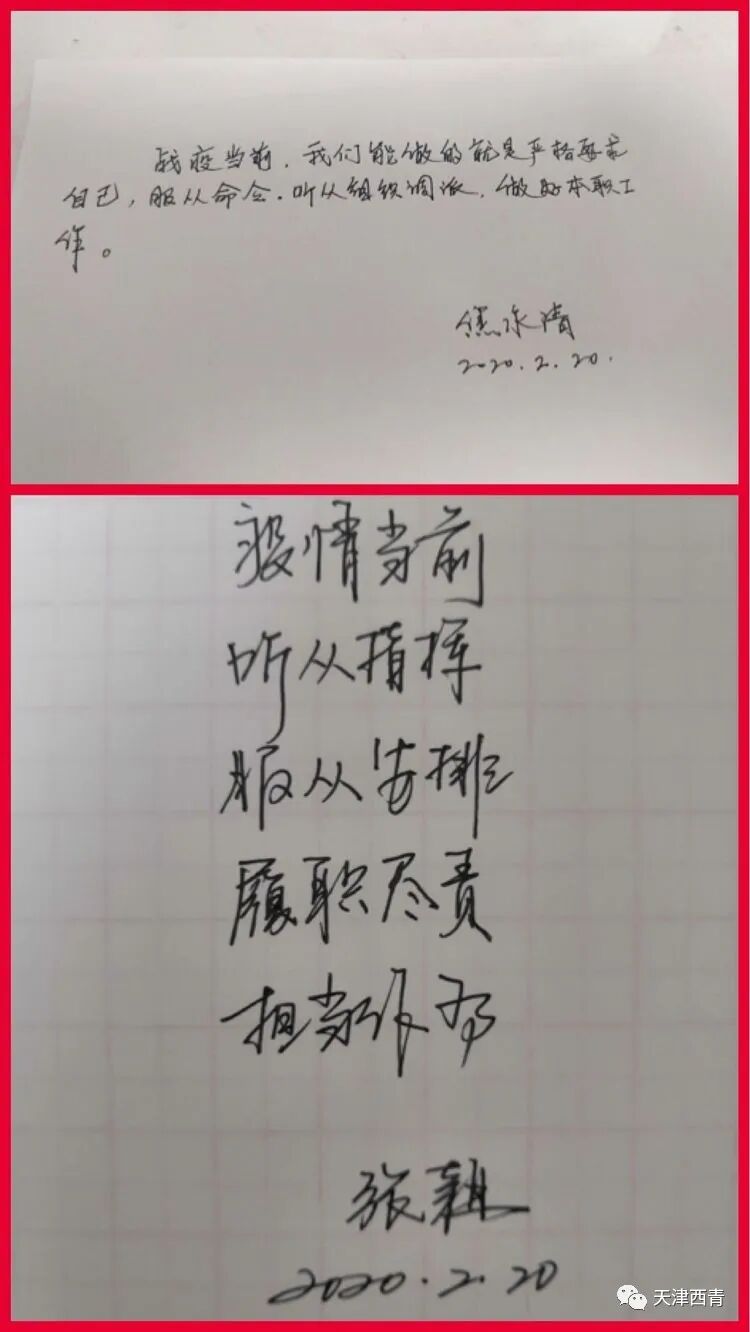 战疫当前，我们能做的就是严格要求
自己，服从命令．听从组织调派，做好本职工
作。
焦永清
2020.2.20.
疫情当前
听从指挥
服从安排
履职尽责
担当作为
张
2020.2.20
天津西青